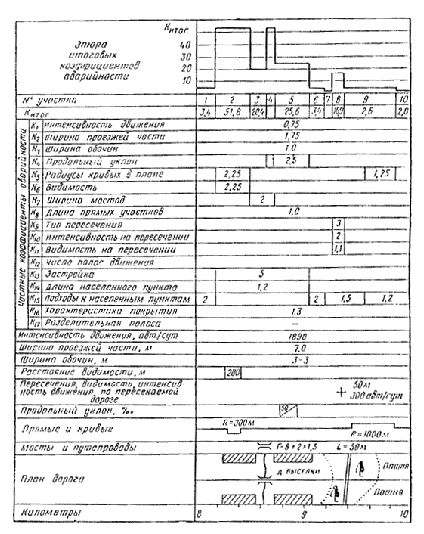 Kитог
Эпюра
итоговых
коэффициентов
аварийности
40
30
20
10
N° участка 1 2 3 4 5 6 7 8 9 10
Kитог 3,4 51,6 25,6 2,6 2,0
Частные коэффициенты аварийности
K1 Интенсивность движения 0,75
K2 Ширина проезжей части 1,75
K3 Ширина обочин 1.0
K4 Продольный уклон 2,5
K5 Радиусы кривых в плане 2,25 1,25
K6 Видимость 2,25
K7 Ширина мостов 2
K8 Длина прямых участков 1.0
K9 Тип пересечения 3
K10 Интенсивность на пересечении 2
K11 Видимость на пересечении 1,1
K12 Число полос движения
K13 Застройка 5
K14 Длина населенного пункта 1,2
K15 Подходы к населенным пунктам 2 2 1,5 1,2
K16 Характеристика покрытия 1.3
K17 Разделительная полоса –
Интенсивность движения, авт/сут 1890
Ширина проезжей части, м 7,0
Ширина обочин, м 3-3
Расстояние видимости, м 200
Пересечения, видимость, интенсив-
ность движения, по пересекаемой
дороге
50м
300 авт/сут
Продольный уклон, ‰ 50
Прямые и кривые R=300м R=1000м
Мосты и путепроводы Г=8+2×1,5 L=50м
План дороги
д. Выселки
Пашня
Пашня
Километры 8 9 10